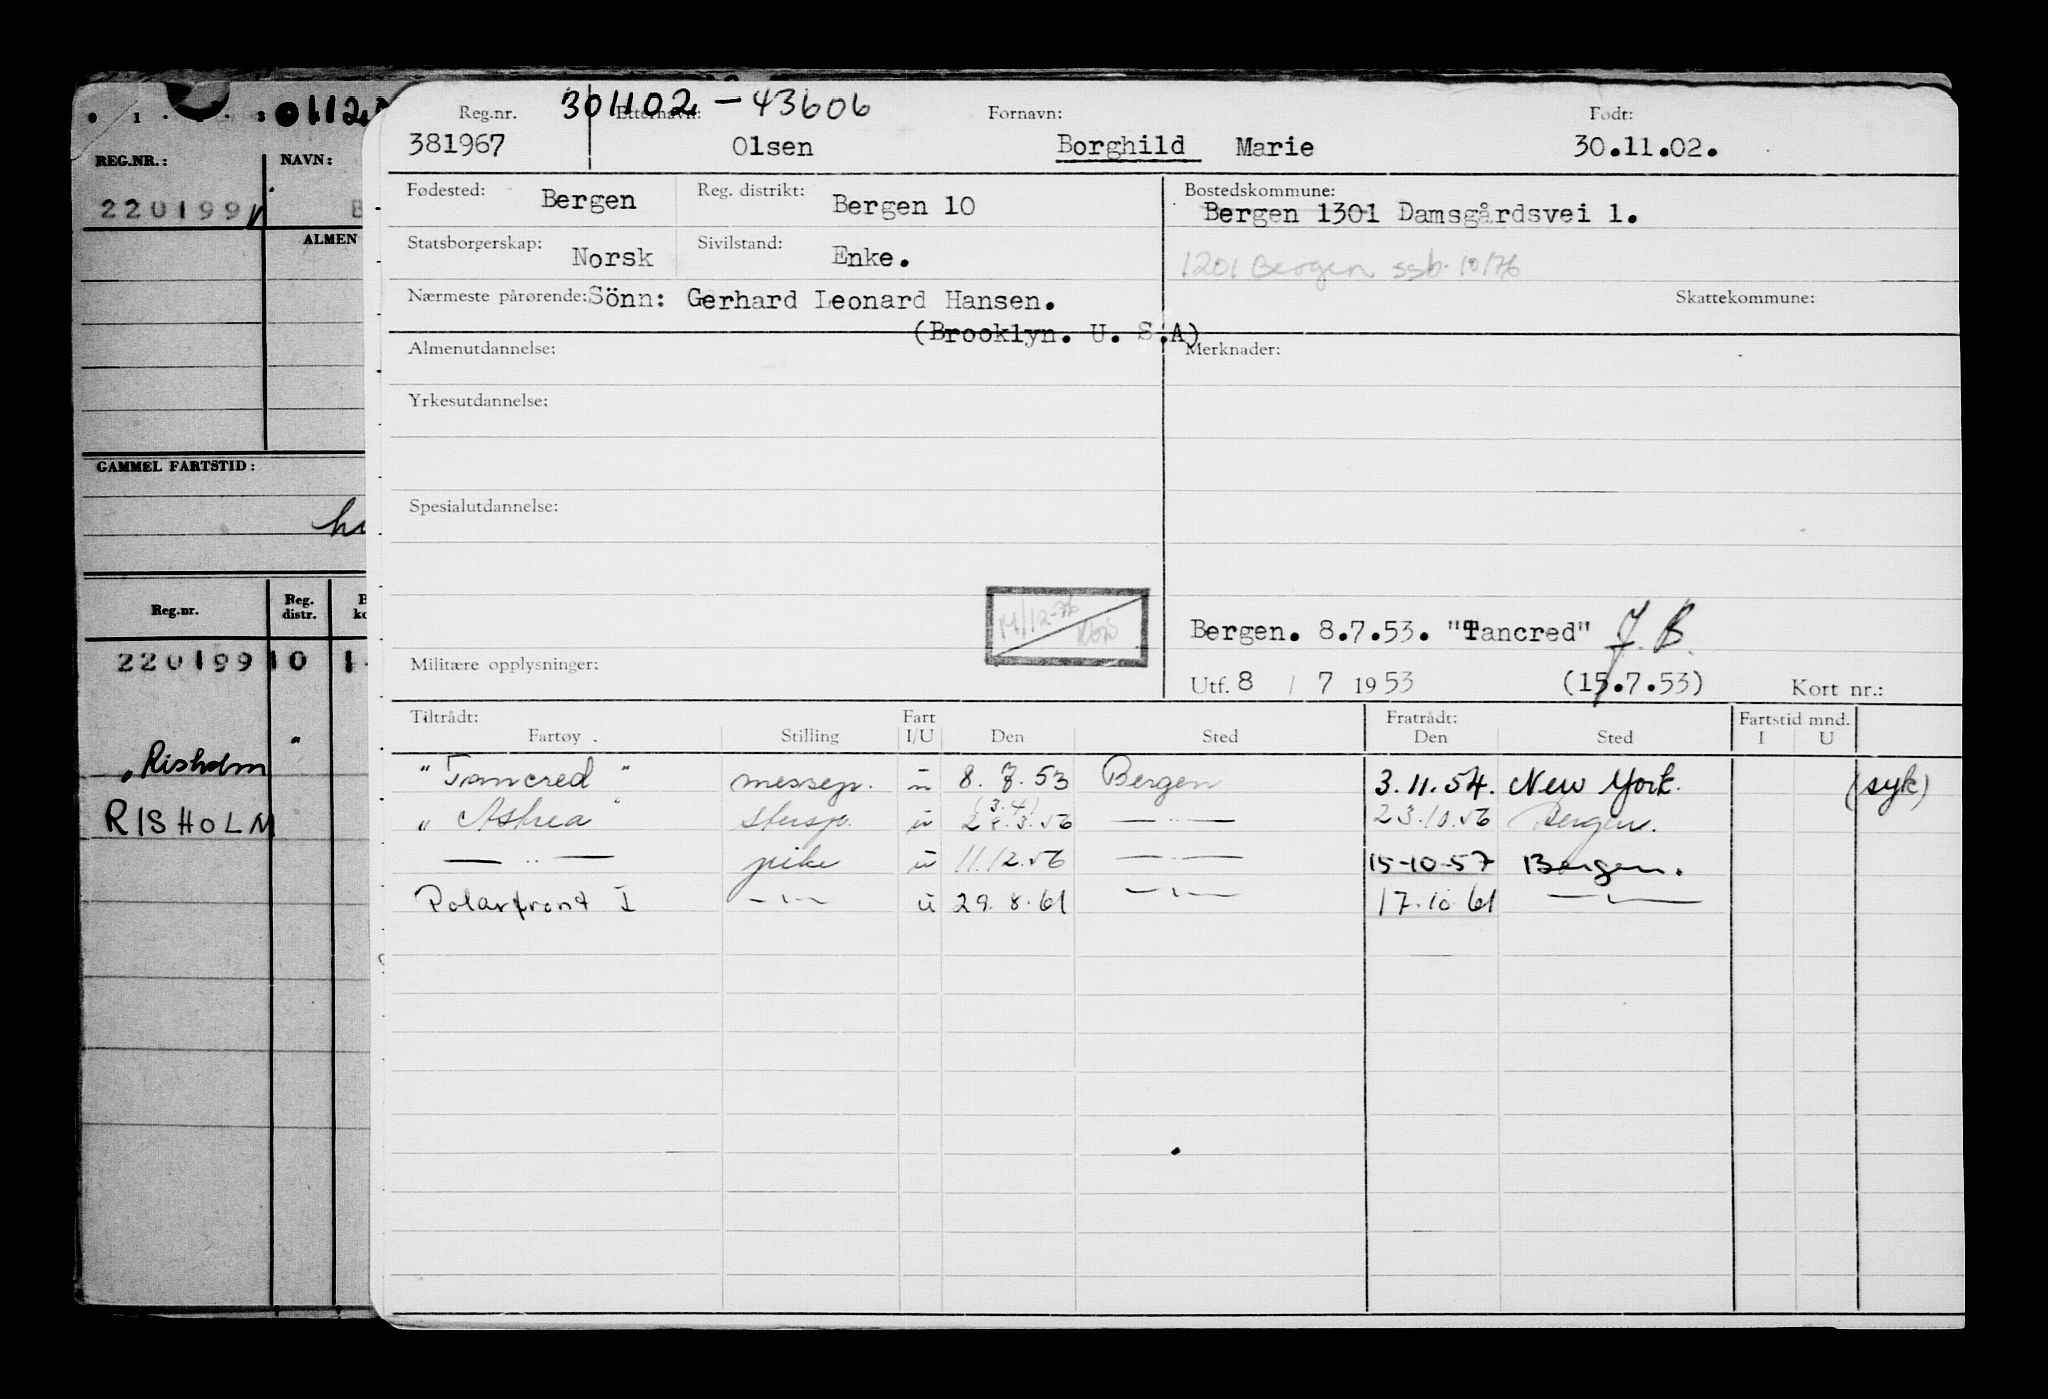 01120
REG.NR.:
NAVN:
220199
ALMEN
GAMMEL FARTSTID:
Reg.nr.
Reg. distr.
220199 10
"Risholm "
RISHOLM
301102-43606
Reg.nr. Etternavn: Fornavn: Født:
381967 Olsen Borghild Marie 30.11.02.
Fødested: Bergen Reg. distrikt: Bergen 10 Bostedskommune:
Bergen 1301 Damsgårdsvei 1.
Statsborgerskap: Norsk Sivilstand: Enke.
1201 Bergen ssb. 10/76
Nærmeste pårørende: Sönn: Gerhard Leonard Hansen. Skattekommune:
(Brooklyn. U. S.A)
Almenutdannelse: Merknader:
Yrkesutdannelse:
Spesialutdannelse:
Bergen. 8.7.53. "Tancred" J. B.
Militære opplysninger:
Utf. 8 / 7 1953 (15.7.53) Kort nr.:
Tiltrådt: Fart Fratrådt: Fartstid mnd.
Fartøy Stilling I/U Den Sted Den Sted I U
"Tancred" messep. u 8. 7. 53 Bergen 3.11.54. New York. (syk)
(3.4)
"Astrea" u 28.3.56 — " — 23.10.56 Bergen.
— " — pike u 11.12.56 — " — 15-10-57 Bergen.
Polarfront I — " — u 29. 8. 61 — " — 17.10.61 — " —